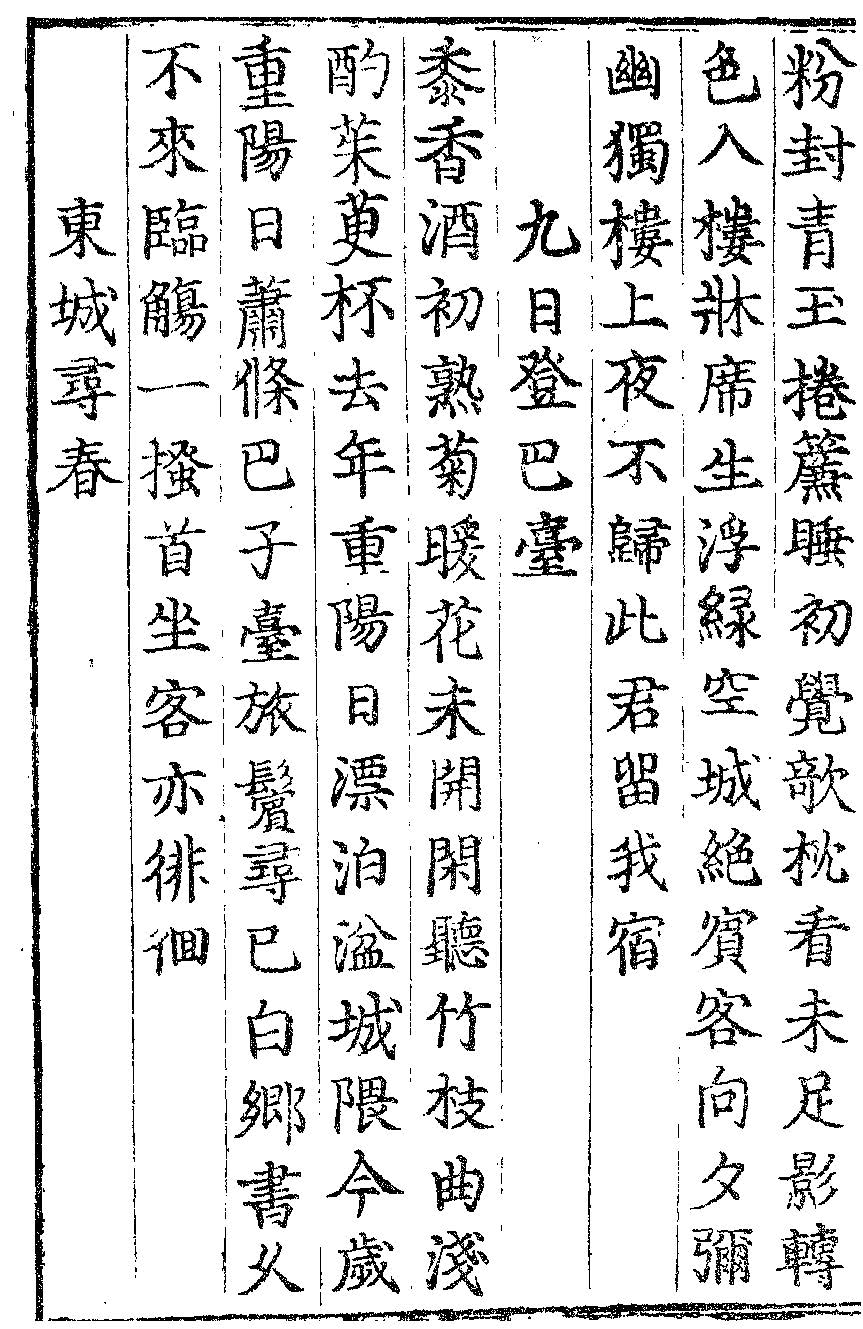 粉封青玉捲簾睡初覺欹枕看未足影轉
色入樓牀席生浮緑空城絶賓客向夕彌
幽獨樓上夜不歸此君留我宿
九日登巴臺
黍香酒初熟菊暖花未開閑聽竹枝曲淺
酌茱萸杯去年重陽日漂泊湓城隈今歲
重陽日蕭條巴子臺旅鬢尋已白鄉書乆
不來臨觴一搔首坐客亦徘徊
東城尋春